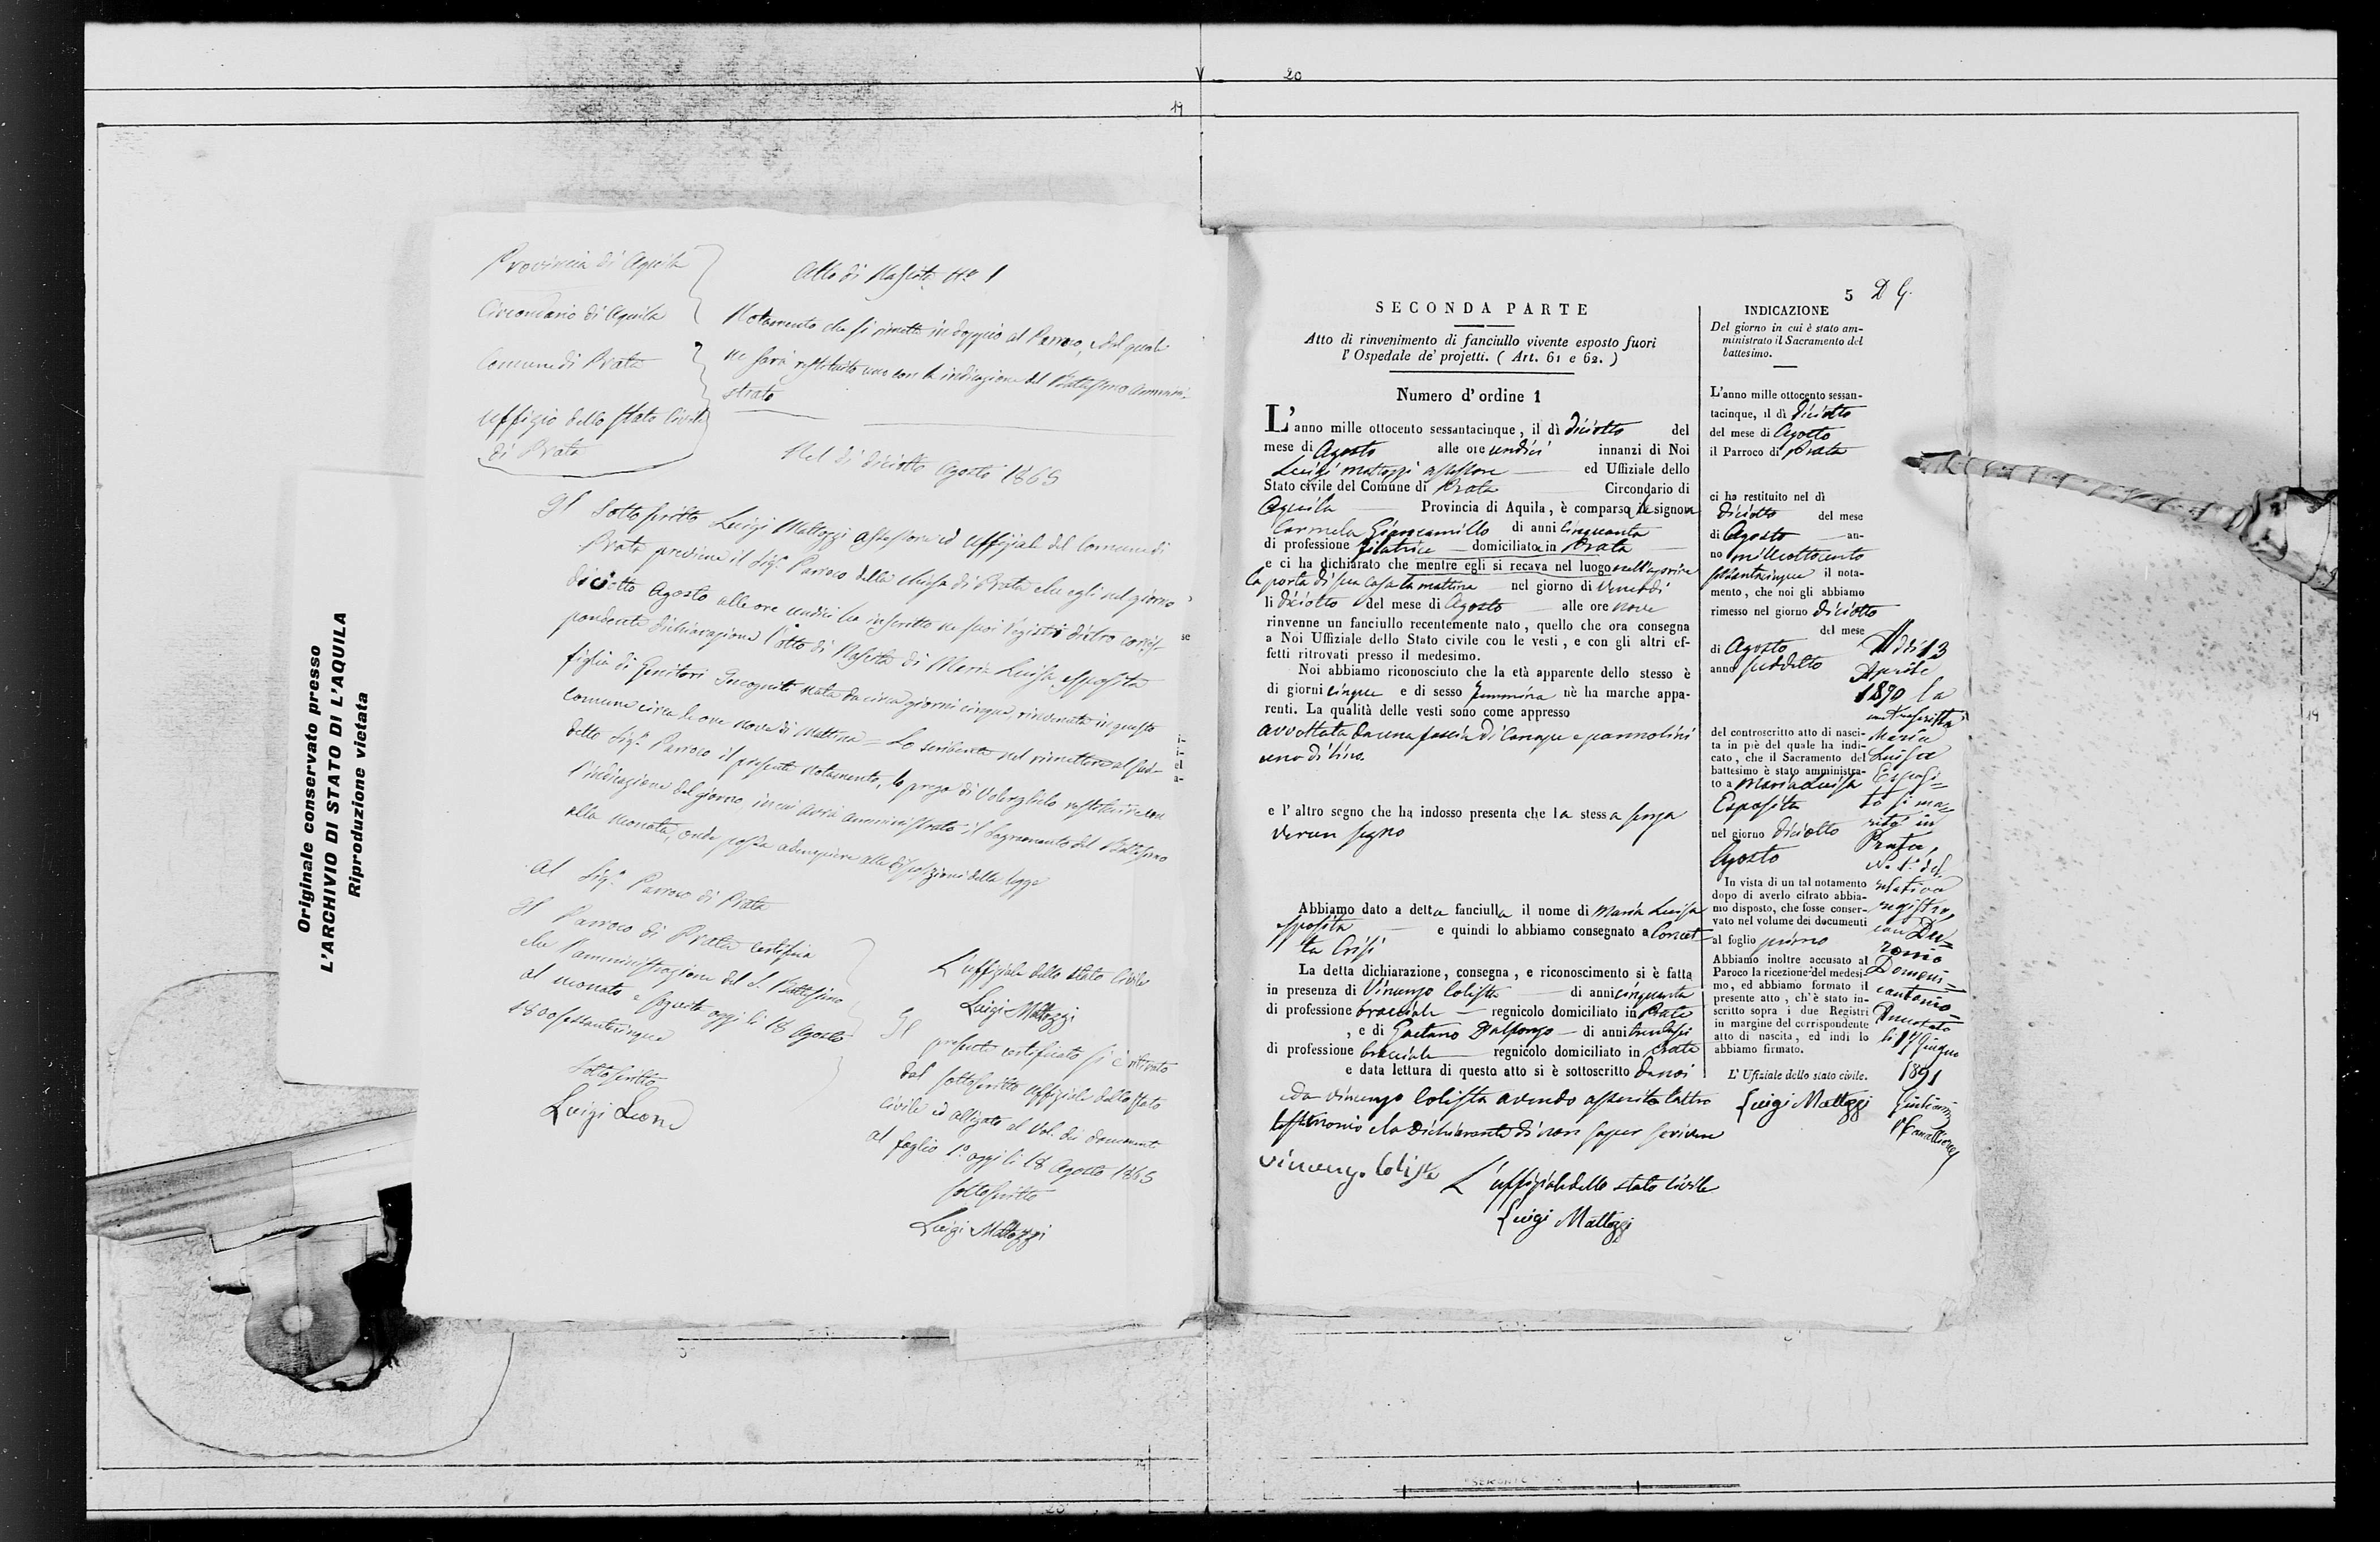 20
19
Originale conservato presso
L'ARCHIVIO DI STATO DI L'AQUILA
Riproduzione vietata
Provincia di Aquila
Circondario di Aquila
Comune di Prata
Uffizio dello Stato Civile
di Prata
Atto di Nascita No 1
Notamento che si rimette in doppio al Parroco, del quale
ne sarà restituito uno con la indicazione del Battesimo ammini-
strato
Nel dì diciotto Agosto 1865
Il Sottoscritto Luigi Mattozzi assessore ed Uffiziale del Comune di
Prata previene il Sigr Parroco della chiesa di Prata che egli nel giorno
diciotto Agosto alle ore undici ha inscritto ne suoi registri dietro corris-
pondente dichiarazione l'atto di Nascita di Maria Luisa Esposita
figlia di Genitori Incogniti nata da circa giorni cinque, rinvenuta in questo
comune circa le ore nove di mattina = Lo scrivente nel rimettere al sud-
detto Sigr Parroco il presente notamento, lo prega di volerglielo restituire con
l'indicazione del giorno in cui avrà amministrato il Sagramento del Battesimo
alla neonata, onde possa adempiere alle disposizioni della legge
Al Sigr Parroco di Prata
Il Parroco di Prata certifica
che l'amministrazione del S. Battesimo
al neonato è seguita oggi li 18 Agosto
1800sessantacinque
Sottoscritto
Luigi Leone
L'uffiziale dello stato civile
Luigi Mattozzi
Il presente certificato si è cifrato
dal sottoscritto uffiziale dello stato
civile ed alligato al Vol. dei documenti
al foglio 1º oggi li 18 Agosto 1865
Sottoscritto
Luigi Mattozzi
5 D G.
SECONDA PARTE
Atto di rinvenimento di fanciullo vivente esposto fuori
l'Ospedale de' projetti. ( Art. 61 e 62. )
Numero d'ordine 1
L'anno mille ottocento sessantacinque, il dì diciotto del
mese di Agosto alle ore undici innanzi di Noi
Luigi Mattozzi assessore ed Uffiziale dello
Stato civile del Comune di Prata Circondario di
Aquila Provincia di Aquila, è comparsa la signora
Carmela di anni cinquanta
di professione filatrice domiciliata in Prata
e ci ha dichiarato che mentre egli si recava nel luogo nell'aprire
la porta di sua casa la mattina nel giorno di Venerdi
li diciotto del mese di Agosto alle ore nove
rinvenne un fanciullo recentemente nato, quello che ora consegna
a Noi Uffiziale dello Stato civile con le vesti, e con gli altri ef-
fetti ritrovati presso il medesimo.
Noi abbiamo riconosciuto che la età apparente dello stesso è
di giorni cinque e di sesso femmina nè ha marche appa-
renti. La qualità delle vesti sono come appresso
avvoltata da una fascia di canape e pannolini
uno di lino.
e l'altro segno che ha indosso presenta che la stessa senza
verun segno
Abbiamo dato a detta fanciulla il nome di Maria Luisa
Esposita e quindi lo abbiamo consegnato a Concet-
ta Crisi
La detta dichiarazione, consegna, e riconoscimento si è fatta
in presenza di Vincenzo Colista di anni cinquanta
di professione bracciale regnicolo domiciliato in Prata
, e di Gaetano Dalfonzo di anni trentasei
di professione bracciale regnicolo domiciliato in Prata
e data lettura di questo atto si è sottoscritto da noi
e da Vincenzo Colista avendo asserito l'altro
testimonio e la Dichiarante di non saper scrivere
Vincenzo Colista
L'uffiziale dello stato civile
Luigi Mattozzi
INDICAZIONE
Del giorno in cui è stato am-
ministrato il Sacramento del
battesimo.
L'anno mille ottocento sessan-
tacinque, il dì diciotto
del mese di Agosto
il Parroco di Prata
ci ha restituito nel dì
diciotto del mese
di Agosto an-
no milleottocento
sessantacinque il nota-
mento, che noi gli abbiamo
rimesso nel giorno diciotto
del mese
di Agosto
anno suddetto
del controscritto atto di nasci-
ta in piè del quale ha indi-
cato, che il Sacramento del
battesimo è stato amministra-
to a Maria Luisa
Esposita
nel giorno diciotto
Agosto
In vista di un tal notamento
dopo di averlo cifrato abbia-
mo disposto, che fosse conser-
vato nel volume dei documenti
al foglio primo
Abbiamo inoltre accusato al
Paroco la ricezione del medesi-
mo, ed abbiamo formato il
presente atto, ch'è stato in-
scritto sopra i due Registri
in margine del corrispondente
atto di nascita, ed indi lo
abbiamo firmato.
L'Ufiziale dello stato civile.
Luigi Mattozzi
Addì 13
Aprile
1890 la
controscritta
Maria
Luisa
Esposi=
to si ma=
ritò in
Prata,
No 1º del
relativo
registro,
con
Domeni=
cantonio=
Annotato
li 17 Giugno
1891